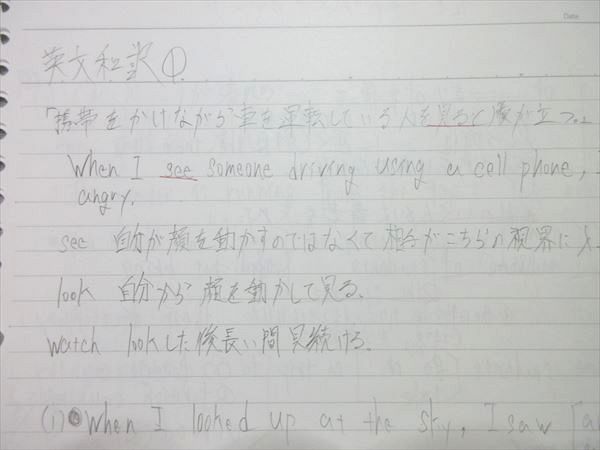 英文和訳①
「携帯をかけながら車を運転している人を見ると腹が立つ。」
When I see someone driving using a cell phone,
angry.
see 自分が顔を動かすのではなくて相手がこちらの視界に入
look 自分から顔を動かして見る。
watch lookした後長い間見続ける。
(1) When I looked up at the sky, I saw